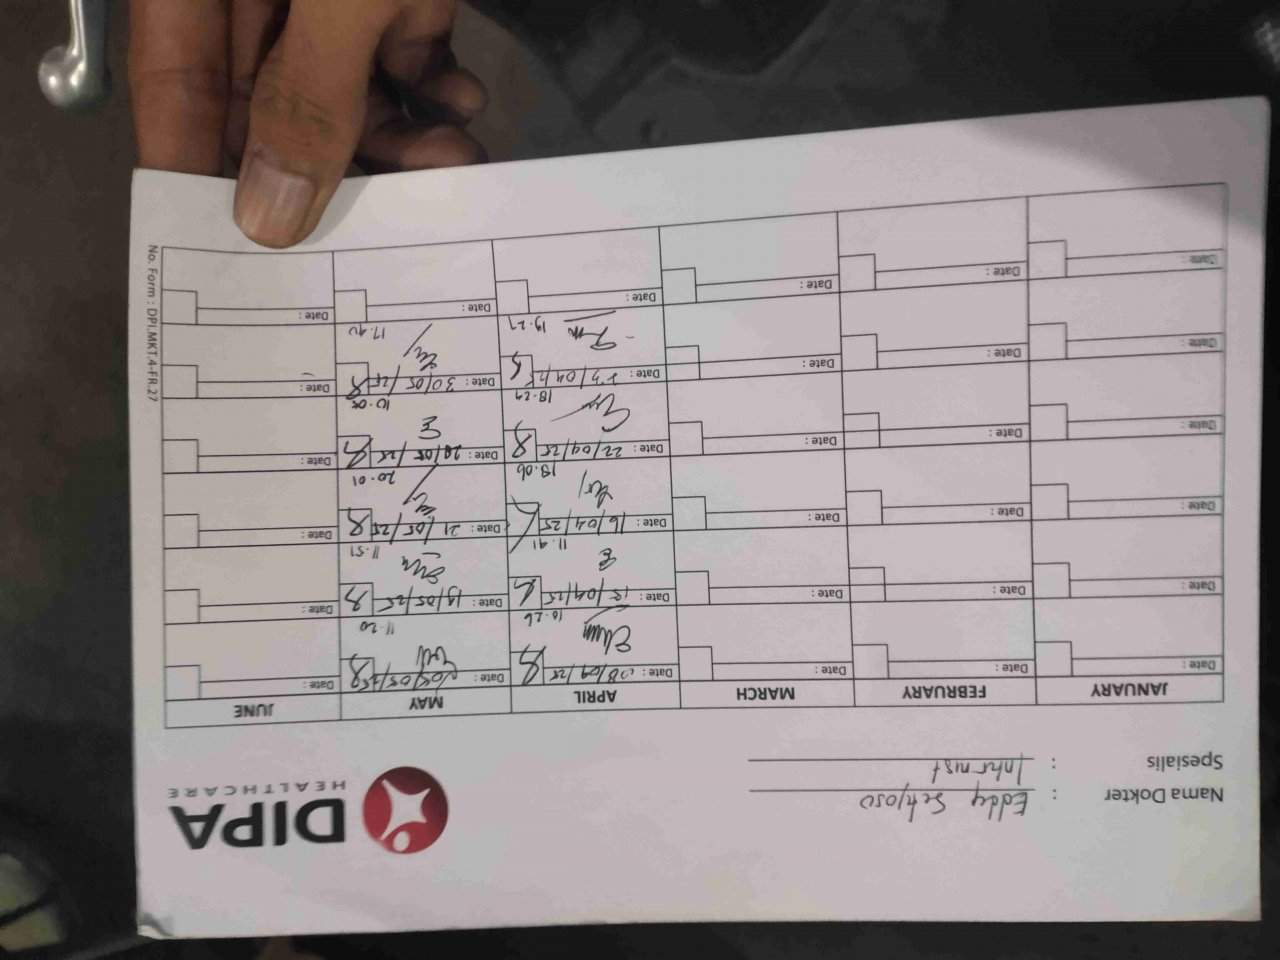 Nama Dokter : Eddy Setyoso
Spesialis : Internist
DIPA
HEALTHCARE
JANUARY FEBRUARY MARCH APRIL MAY JUNE
Date : Date : Date : Date : 08/04/25 Date : 05/05/25 Date :
10.26 11.20
Date : Date : Date : Date : 15/04/25 Date : 19/05/25 Date :
11.41 11.51
Date : Date : Date : Date : 16/04/25 Date : 21/05/25 Date :
18.06 20.01
Date : Date : Date : Date : 22/04/25 Date : 28/05/25 Date :
18.29 10.05
Date : Date : Date : Date : 23/04/25 Date : 30/05/25 Date :
19.27 17.40
Date : Date : Date : Date : Date : Date :
No. Form : DPI.MKT.4-FR.27